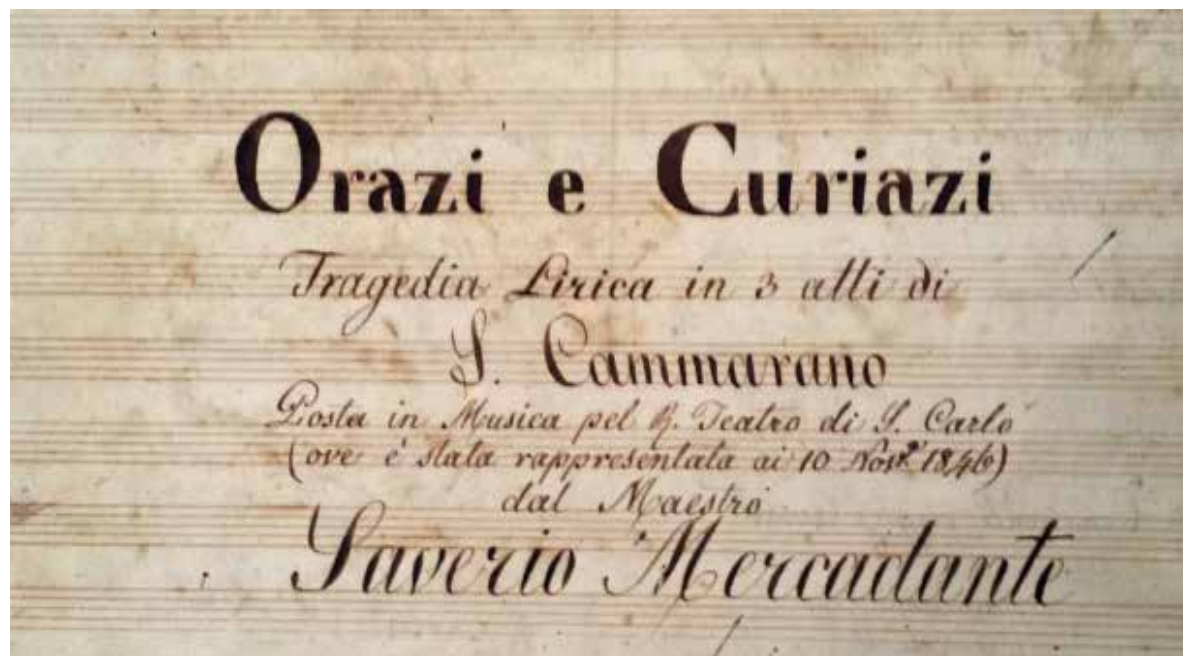 Orazi e Curiazi
Tragedia Lirica in 3 atti di
S. Cammarano
Posta in Musica pel R. Teatro di S. Carlo
(ove è stata rappresentata ai 10 Nov.e 1846)
dal Maestro
Saverio Mercadante